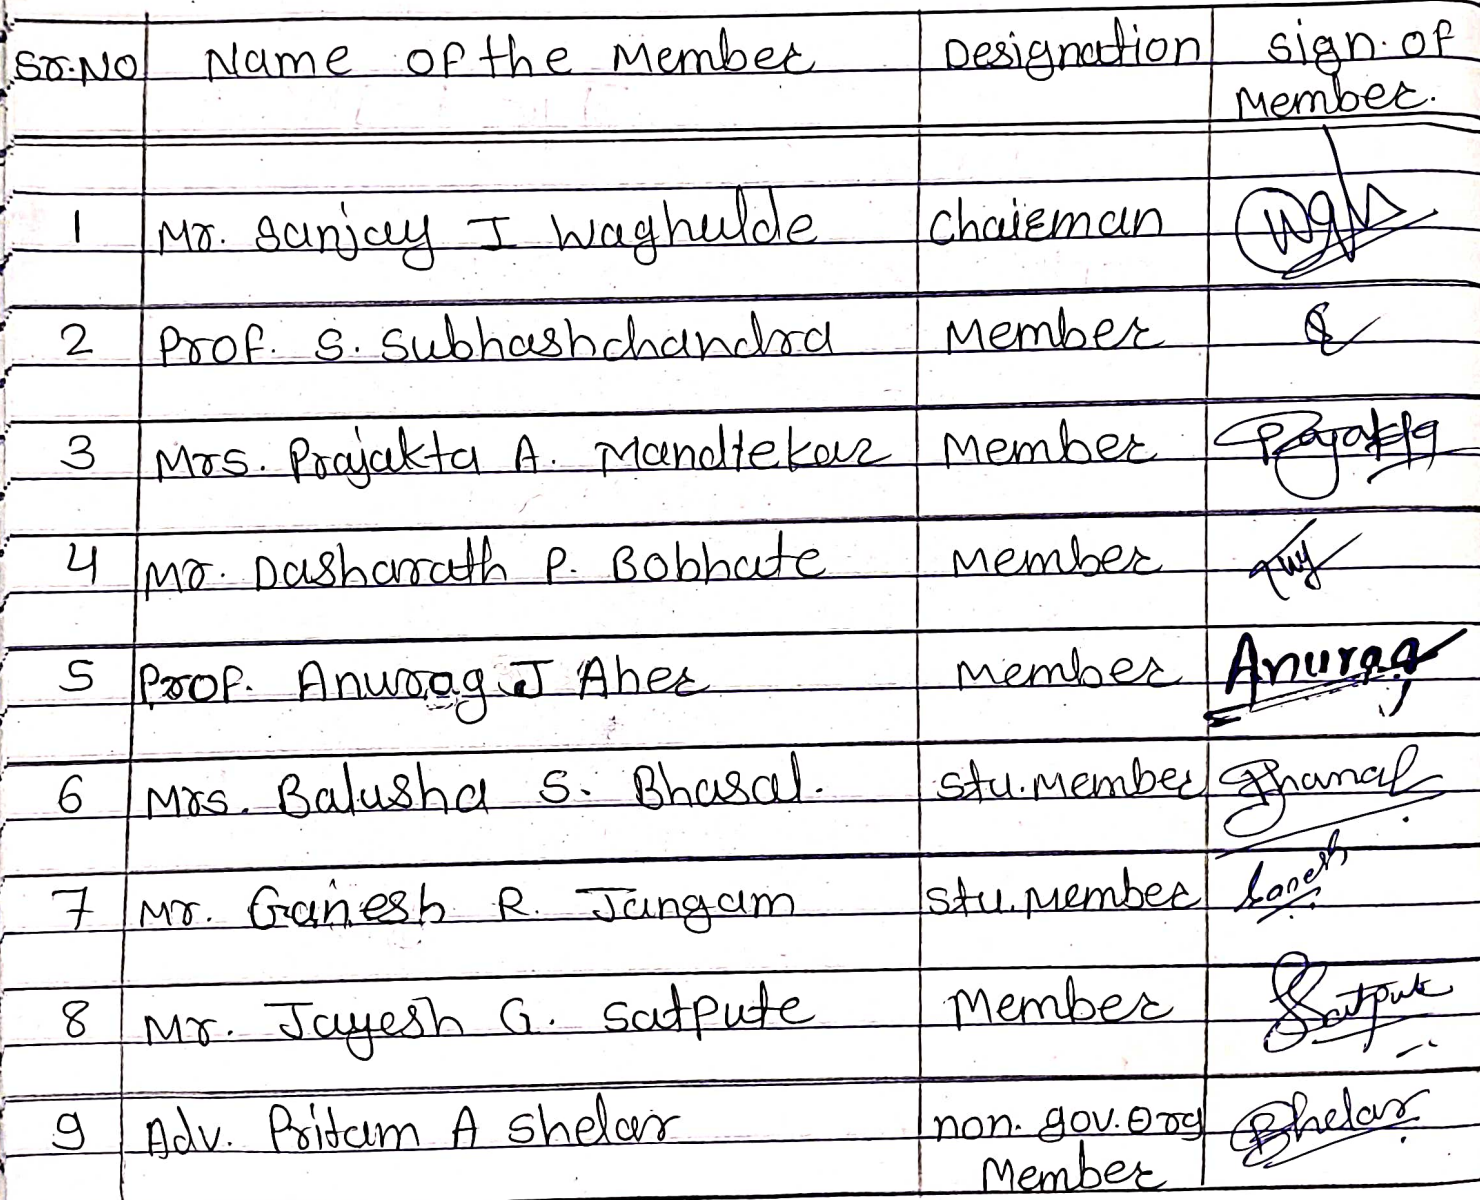 Sr.No Name of the Member Designation Sign. of
Member.
1 Mr. Sanjay I Waghulde Chairman
2 Prof. S. Subhashchandra Member
3 Mrs. Prajakta A. Mandlekar Member Prajakta
4 Mr. Dasharath P. Bobhate Member
5 Prof. Anurag J Aher Member Anurag
6 Mrs. Balusha S. Bhasal. Stu. Member
7 Mr. Ganesh R. Jangam Stu. Member Ganesh
8 Mr. Jayesh G. Satpute Member Satpute
9 Adv. Pritam A Shelar non. gov. Org Shelar
Member